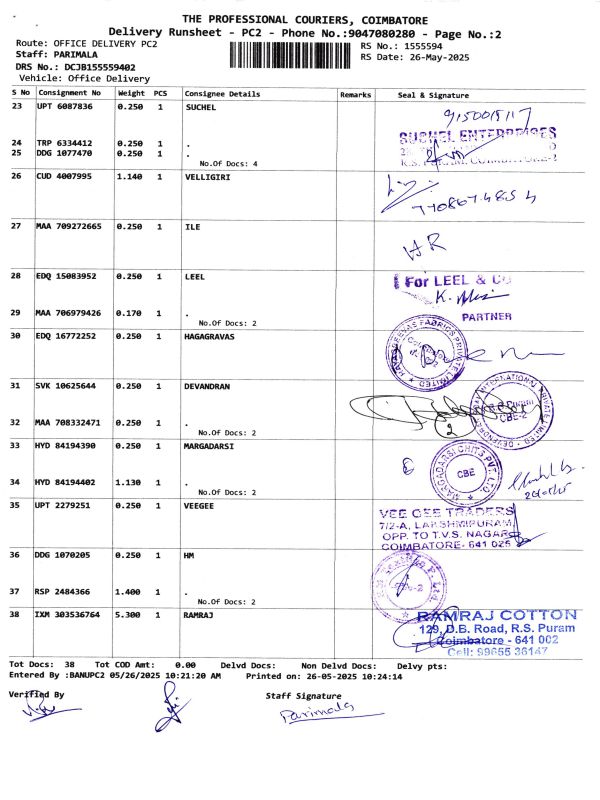 THE PROFESSIONAL COURIERS, COIMBATORE
Delivery Runsheet - PC2 - Phone No.:9047080280 - Page No.:2
Route: OFFICE DELIVERY PC2
Staff: PARIMALA
DRS No.: DCJB155559402
Vehicle: Office Delivery
RS No.: 1555594
RS Date: 26-May-2025
S No Consignment No Weight PCS Consignee Details Remarks Seal & Signature
23 UPT 6087836 0.250 1 SUCHEL
SUCHEL ENTERPRISES
24 TRP 6334412 0.250 1 .
25 DDG 1077470 0.250 1 .
No.Of Docs: 4
26 CUD 4007995 1.140 1 VELLIGIRI
27 MAA 709272665 0.250 1 ILE
HR
28 EDQ 15083952 0.250 1 LEEL
For LEEL & CO
29 MAA 706979426 0.170 1 .
PARTNER
No.Of Docs: 2
30 EDQ 16772252 0.250 1 HAGAGRAVAS
31 SVK 10625644 0.250 1 DEVANDRAN
CBE-2
32 MAA 708332471 0.250 1 .
2
No.Of Docs: 2
33 HYD 84194390 0.250 1 MARGADARSI
MARGADARSI CHITS PVT. LTD.
CBE
34 HYD 84194402 1.130 1 .
No.Of Docs: 2
35 UPT 2279251 0.250 1 VEEGEE
VEE GEE TRADERS
7/2-A, LAKSHMIPURAM,
OPP. TO T.V.S. NAGAR
COIMBATORE- 641 025
36 DDG 1070205 0.250 1 HM
37 RSP 2484366 1.400 1 .
No.Of Docs: 2
38 IXM 303536764 5.300 1 RAMRAJ
RAMRAJ COTTON
129, D.B. Road, R.S. Puram
Coimbatore - 641 002
Cell: 99655 36147
Tot Docs: 38 Tot COD Amt: 0.00 Delvd Docs: Non Delvd Docs: Delvy pts:
Entered By :BANUPC2 05/26/2025 10:21:20 AM Printed on: 26-05-2025 10:24:14
Verified By Staff Signature
Parimala